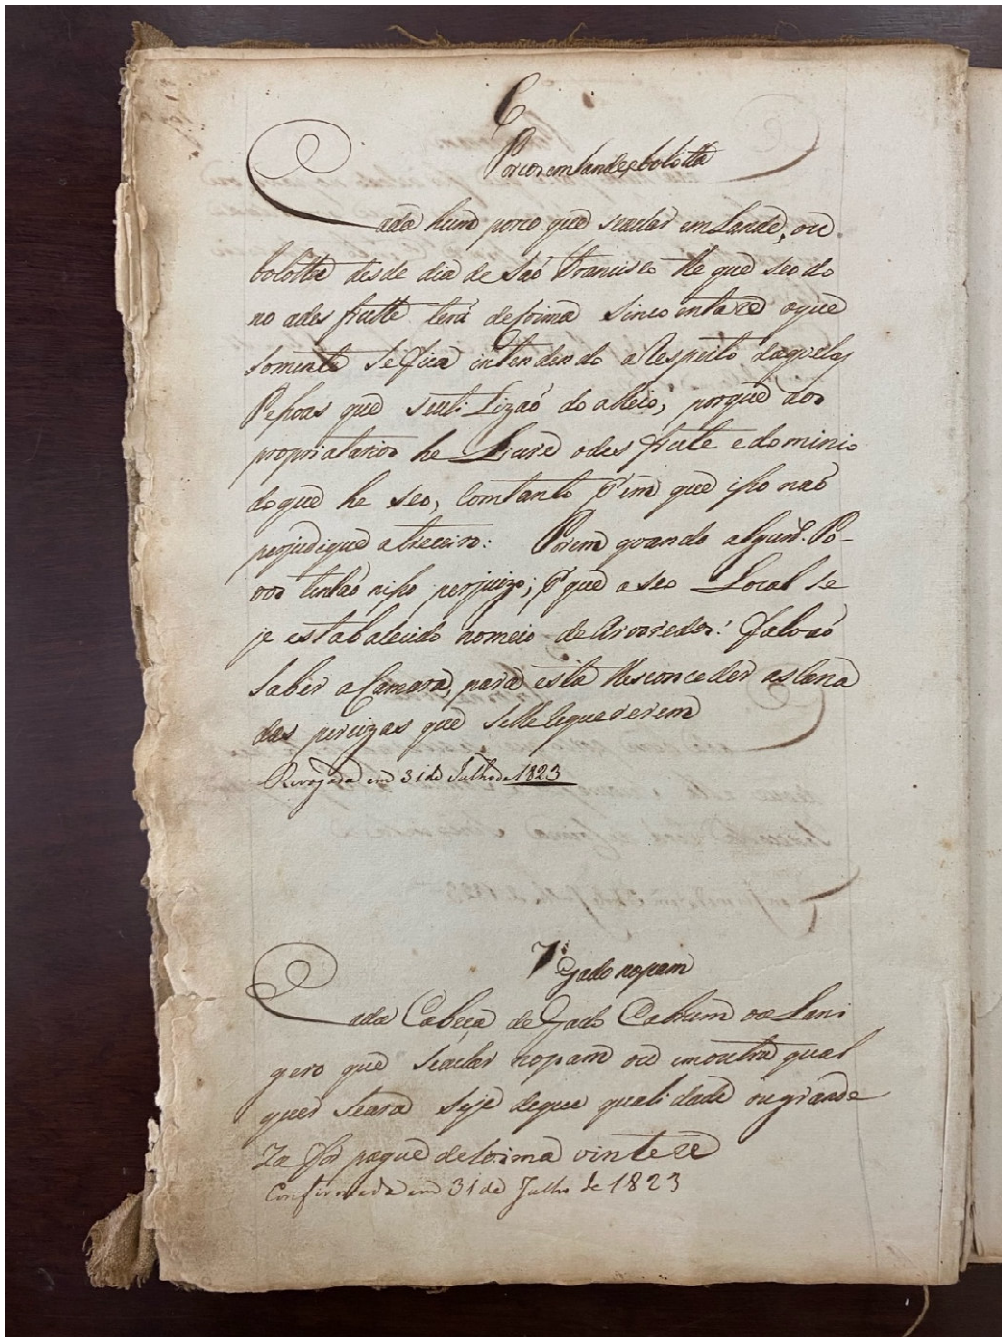 6
Porcos em lande e bolotta
Cada hum porco que se achar em Lande, ou
bolotta desde dia de Saõ Francisco the que seo do
no a des frutte terá de Coima Sincoenta re oque
somente se fica intendendo a Respeito daquelas
Pessoas que se utilizaõ do alheio, porque aos
propriatarios he Livre o des frute e dominio
do que he seo, Com tanto p.em que isso naõ
prejudique a treceiro: Porem quando alguns Po-
vos tinhaõ nisso perjuizo; p.que a seo Local se
je estabalecido no meio de Arvoredos: Façaõ
saber a Camara, para esta lhes conceder as Cana
das percizas que se lhe requererem
Revogada em 31 de Julho de 1823
7ª
Gado no pam
Cada Cabeça de Gado Cabrum ou Lani
gero que se achar no pam ou em outra qual
quer seara seje de que qualidade ou grande
za for pague de Coima vinte re
Confirmada em 31 de Julho de 1823